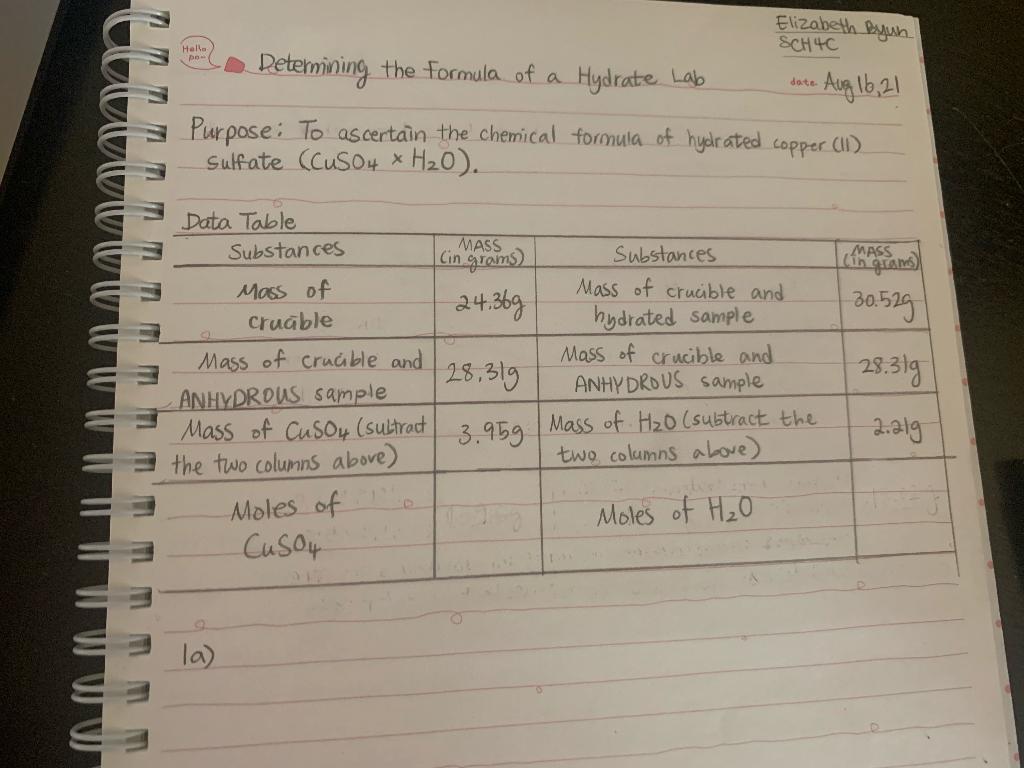 Elizabeth Byun
SCH4C
Hello
Determining the Formula of a Hydrate Lab
date Aug 16, 21
Purpose: To ascertain the chemical formula of hydrated copper (II)
sulfate (CuSO4 × H2O).
Data Table
Substances
MASS
(in grams)
Substances
MASS
(in grams)
Mass of
crucible
24.36g
Mass of crucible and
hydrated sample
30.52g
Mass of crucible and
ANHYDROUS sample
28.31g
Mass of crucible and
ANHYDROUS sample
28.31g
Mass of CuSO4 (subtract
the two columns above)
3.95g
Mass of H2O (subtract the
two columns above)
2.21g
Moles of
CuSO4
Moles of H2O
1a)